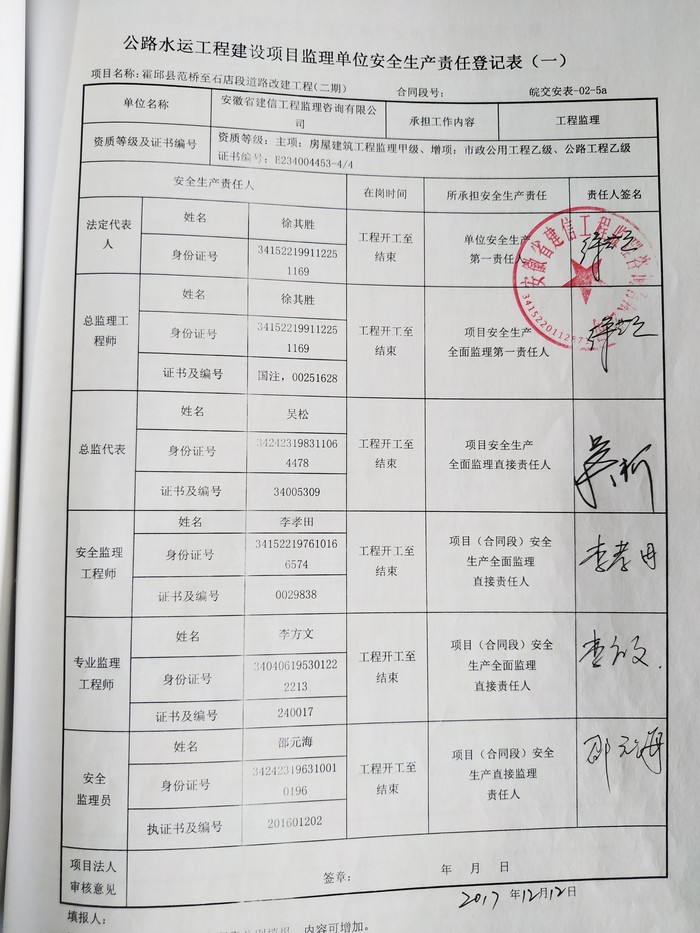 公路水运工程建设项目监理单位安全生产责任登记表（一）
项目名称：霍邱县范桥至石店段道路改建工程(二期) 合同段号： 皖交安表-02-5a
单位名称 安徽省建信工程监理咨询有限公司 承担工作内容 工程监理
资质等级及证书编号 资质等级：主项：房屋建筑工程监理甲级、增项：市政公用工程乙级、公路工程乙级
证书编号：E234004453-4/4
安全生产责任人 在岗时间 所承担安全生产责任 责任人签名
法定代表人 姓名 徐其胜 工程开工至结束 单位安全生产第一责任人
身份证号 341522199112251169
总监理工程师 姓名 徐其胜 工程开工至结束 项目安全生产全面监理第一责任人
身份证号 341522199112251169
证书及编号 国注，00251628
总监代表 姓名 吴松 工程开工至结束 项目安全生产全面监理直接责任人
身份证号 342423198311064478
证书及编号 34005309
安全监理工程师 姓名 李孝田 工程开工至结束 项目（合同段）安全生产全面监理直接责任人 李孝田
身份证号 341522197610166574
证书及编号 0029838
专业监理工程师 姓名 李方文 工程开工至结束 项目（合同段）安全生产全面监理直接责任人 李方文
身份证号 340406195301222213
证书及编号 240017
安全监理员 姓名 邵元海 工程开工至结束 项目（合同段）安全生产直接监理责任人 邵元海
身份证号 342423196310010196
执证书及编号 201601202
项目法人审核意见 签章： 年 月 日
2017 年12月12日
填报人：
内容可增加。